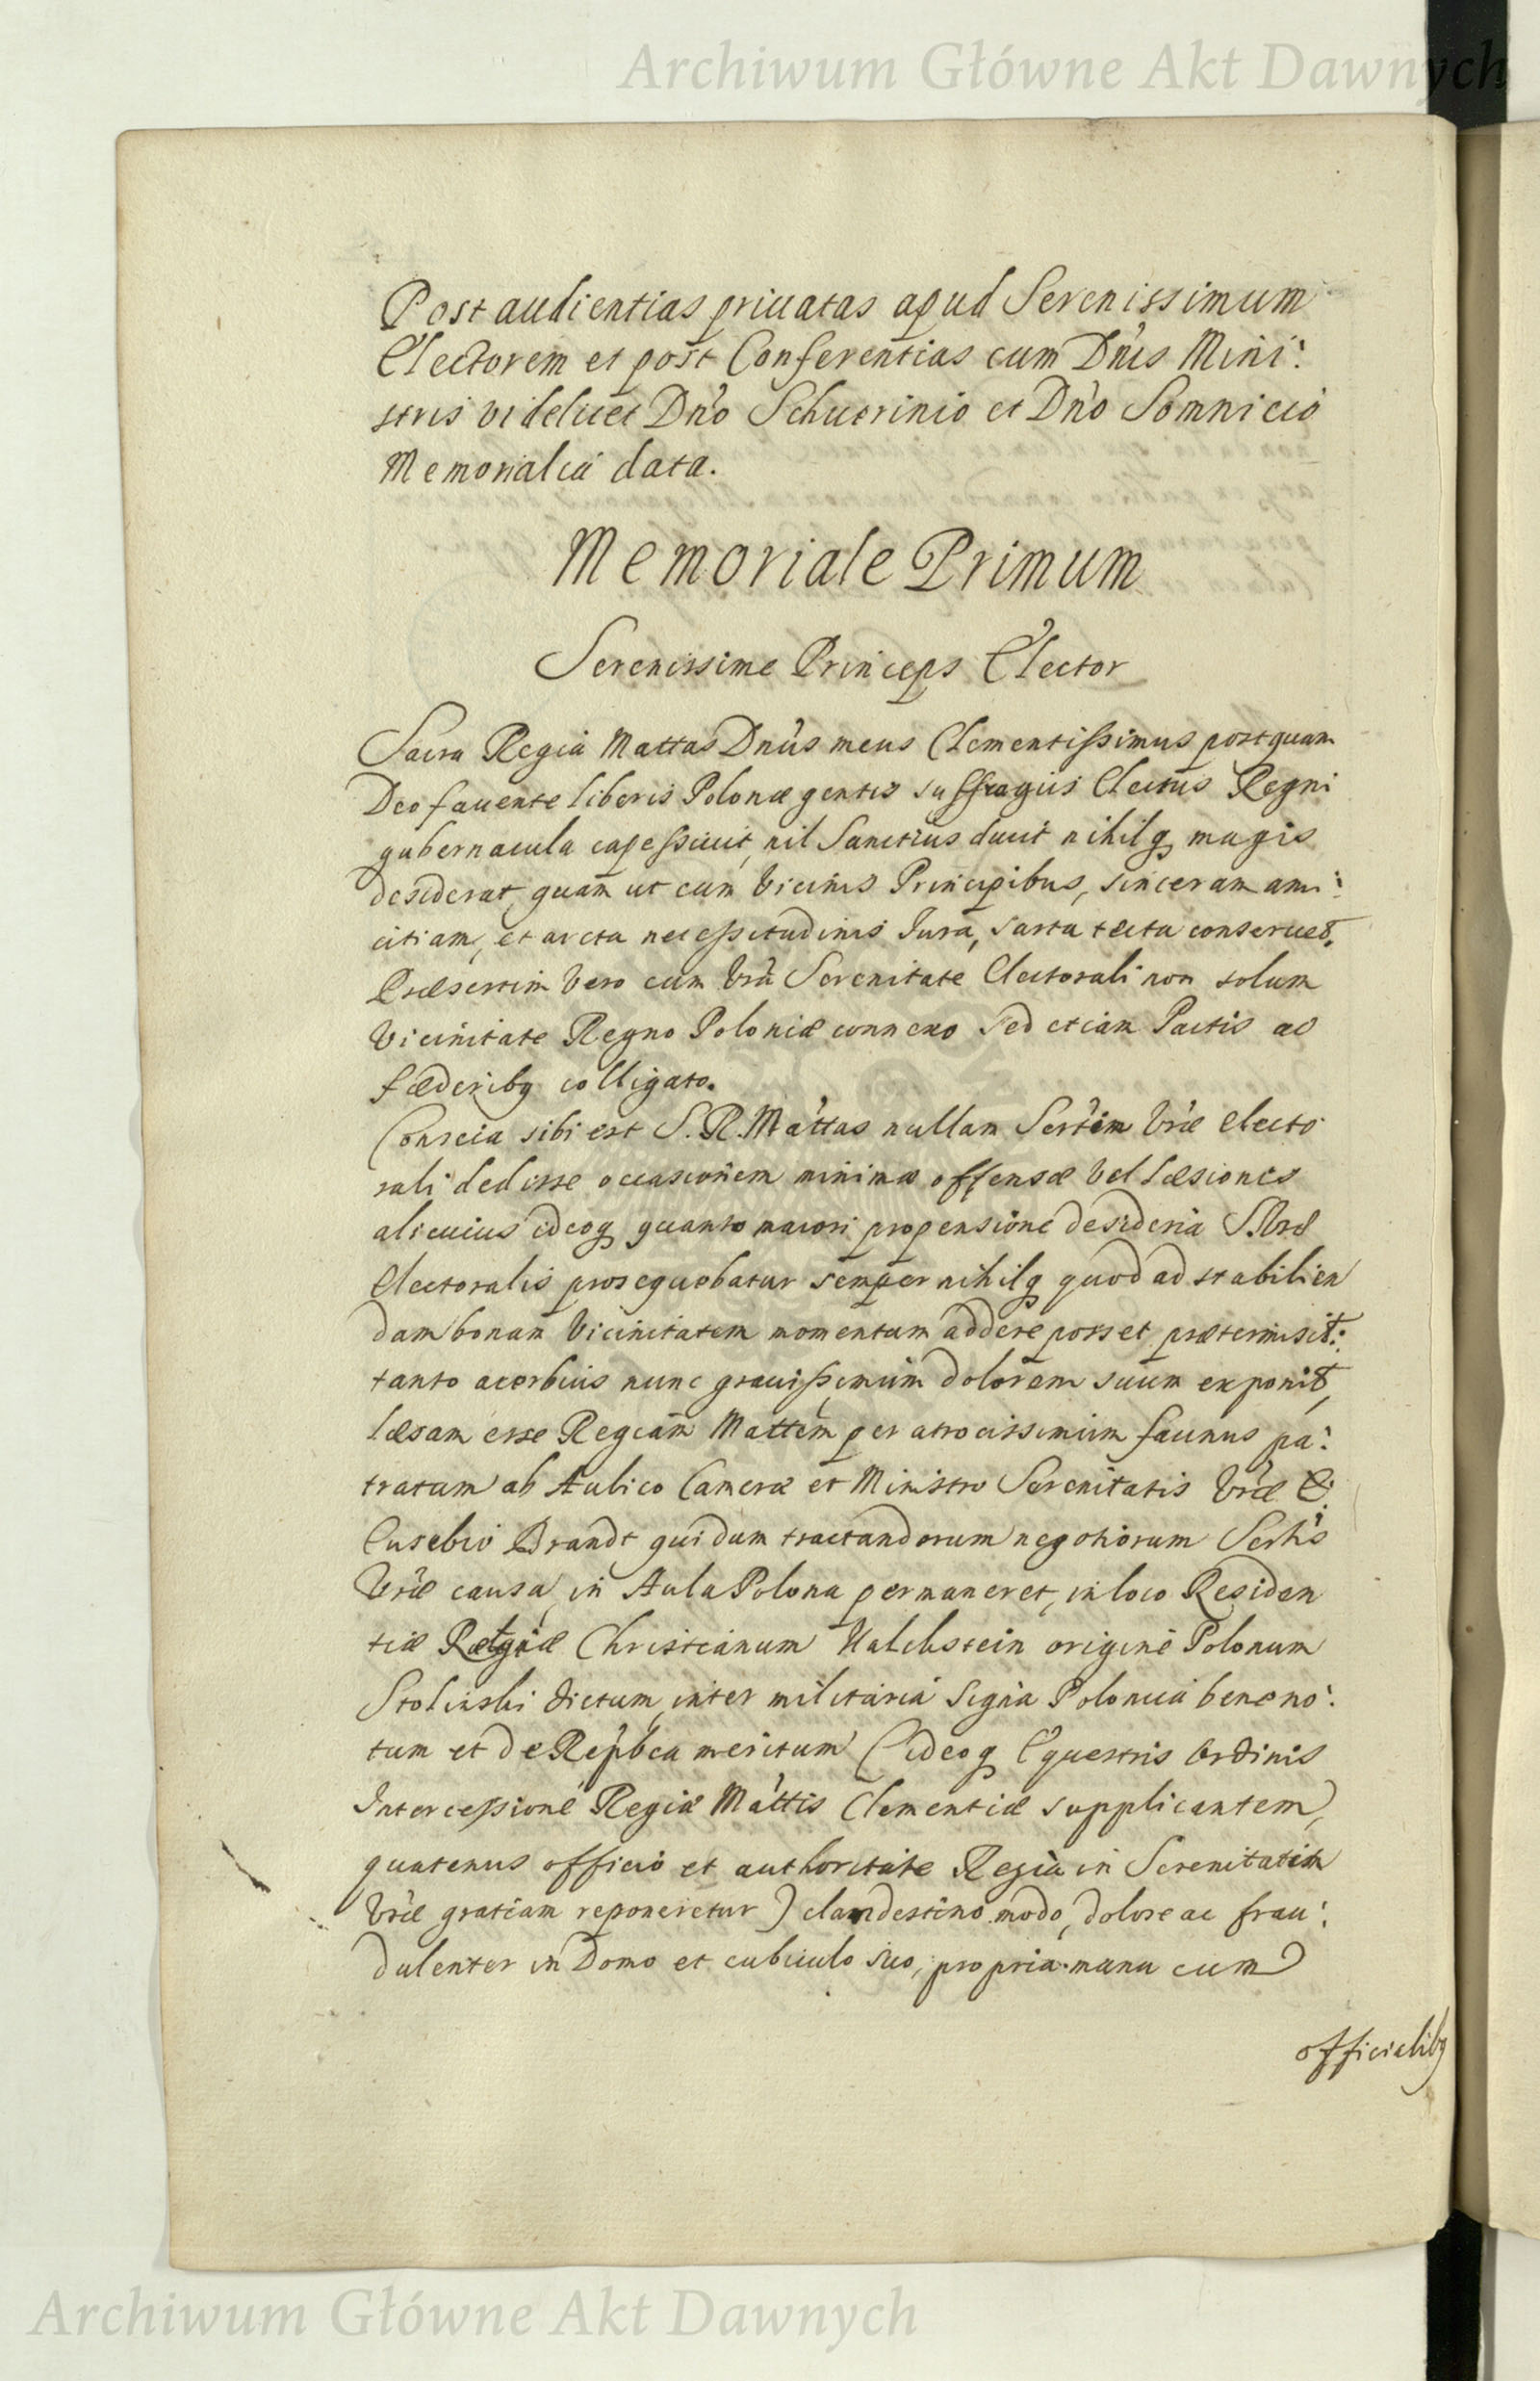 Archiwum Główne Akt Dawnych
Post audientias priuatas apud Serenissimum
Electorem et post Conferentias cum Dn̄is Mini:
stris videlicet Dn̄o Schuerinio et Dn̄o Somnicio
Memorialia data.
Memoriale Primum
Serenissime Princeps Elector
Sacra Regia Mattas Dn̄us meus Clementissimus postquam
Deo fauente liberis Polonæ gentis suffragiis Electus Regni
gubernacula capessiuit, nil Sanctius ducit nihilq₃ magis
desiderat, quam ut cum Vicinis Principibus, sinceram ami:
citiam, et arcta necessitudinis Jura, sarta tecta conseruet,
Præsertim vero cum Vrā Serenitate Electorali non solum
Vicinitate Regno Poloniæ connexo sed etiam Pactis ac
fœderibq₃ colligato.
Conscia sibi est S. R. Mattas nullam Sertīm Vræ Electo
rali dedisse occasionem minimæ offensæ vel læsionis
alicuius ideoq₃ quanto maiori propensione desideria S. Vræ
Electoralis prosequebatur semper nihilq₃ quod ad stabilien
dam bonam Vicinitatem momentum addere posset prætermisit:
tanto acerbius nunc grauissimum dolorem suum exponit,
læsam esse Regiam Mattēm per atrocissimum facinus pa:
tratum ab Aulico Cameræ et Ministro Serenitatis Vræ E.
Eusebio Brandt qui dum tractandorum negotiorum Sertis
Vræ causa, in Aula Polona permaneret, in loco Residen
tiæ Regiæ Christianum Kalckstein origine Polonum
Stolinski dictum, inter militaria Signa Polonica bene no:
tum et de Repbca meritum (ideoq₃ Equestris Ordinis
Intercessione Regiæ Mattis Clementiæ supplicantem,
quatenus officio et authoritate Regia in Serenitatis
Vræ gratiam reponeretur) clandestino modo, dolore ac frau:
dulenter in Domo et cubiculo suo, propria manu cum
officialibq₃
Archiwum Główne Akt Dawnych